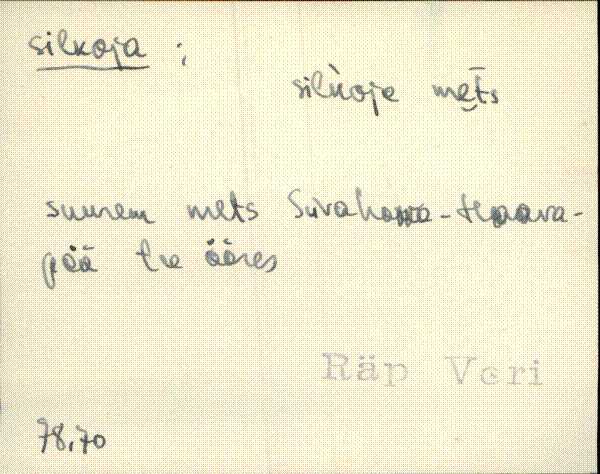 silkoja :
silk̀oje mēt̮s
suurem mets Suvahavva - Haava-
pää tee ääres
Räp Veri
78.70